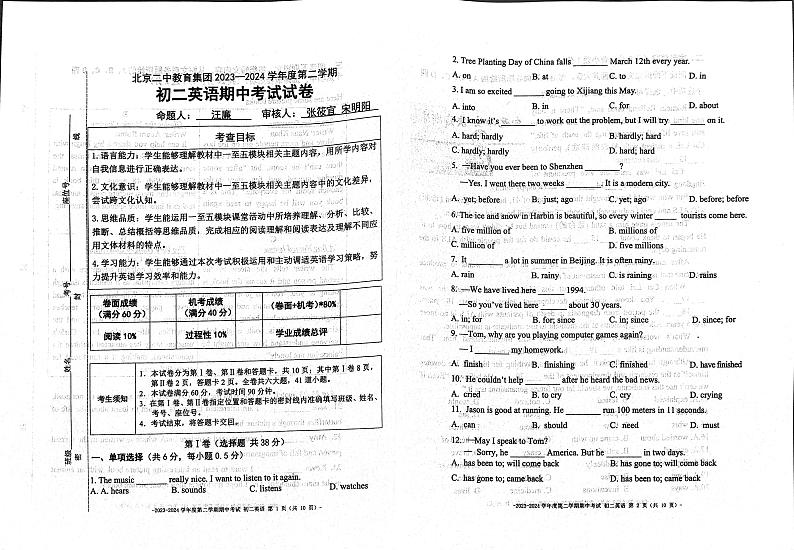 北京二中教育集团 2023—2024 学年度第二学期
初二英语期中考试试卷
命题人： 汪廉 审核人： 张筱宜 宋明阳
考查目标
1. 语言能力：学生能够理解教材中一至五模块相关主题内容，用所学内容对
自我信息进行正确表达。
2. 文化意识：学生能够理解教材中一至五模块相关主题内容中的文化差异，
尝试跨文化认知。
3. 思维品质：学生能运用一至五模块课堂活动中所培养理解、分析、比较、
推断、总结概括等思维品质，完成相应的阅读理解和阅读表达及理解不同应
用文体材料的特点。
4. 学习能力：学生能够通过本次考试积极运用和主动调适英语学习策略，努
力提升英语学习效率和能力。
卷面成绩
（满分 60 分） 机考成绩
（满分 40 分） （卷面+机考）*80%
阅读 10% 过程性 10% 学业成绩总评
考生须知
1. 本试卷分为第Ⅰ卷、第Ⅱ卷和答题卡，共 10 页；其中第Ⅰ卷 8 页，
第Ⅱ卷 2 页，答题卡 2 页。全卷共六大题，41 道小题。
2. 本试卷满分 60 分，考试时间 90 分钟。
3. 在第Ⅰ卷、第Ⅱ卷指定位置和答题卡的密封线内准确填写班级、姓名、
考号、座位号。
4. 考试结束，将答题卡交回。
第Ⅰ卷（选择题 共 38 分）
一、单项选择（共 6 分，每小题 0.5 分）
1. The music ______ really nice. I want to listen to it again.
A. A. hears B. sounds C. listens D. watches
-2023-2024 学年度第二学期期中考试 初二英语 第 1 页（共 10 页）-
座位号
线
考号
封
姓名
班级
密
2. Tree Planting Day of China falls ______ March 12th every year.
A. on B. at C. to D. in
3. I am so excited ______ going to Xijiang this May.
A. into B. in C. for D. about
4. I know it's ______ to work out the problem, but I will try ______ on it.
A. hard; hardly B. hardly; hard
C. hardly; hardly D. hard; hard
5. —Have you ever been to Shenzhen ______?
—Yes. I went there two weeks ______. It is a modern city.
A. yet; before B. just; ago C. yet; ago D. before; before
6. The ice and snow in Harbin is beautiful, so every winter ______ tourists come here.
A. five million of B. millions of
C. million of D. five millions
7. It ______ a lot in summer in Beijing. It is often rainy.
A. rain B. rainy C. is raining D. rains
8. —We have lived here ______ 1994.
—So you've lived here ______ about 30 years.
A. in; for B. for; since C. in; since D. since; for
9. —Tom, why are you playing computer games again?
—I ______ my homework.
A. finish B. finishing C. finished D. have finished
10. He couldn't help ______ after he heard the bad news.
A. cried B. to cry C. cry D. crying
11. Jason is good at running. He ______ run 100 meters in 11 seconds.
A. can B. should C. need D. must
12. —May I speak to Tom?
— Sorry, he ______ America. But he ______ in two days.
A. has been to; will come back B. has gone to; will come back
C. has gone to; came back D. has been to; came back
-2023-2024 学年度第二学期期中考试 初二英语 第 2 页（共 10 页）-